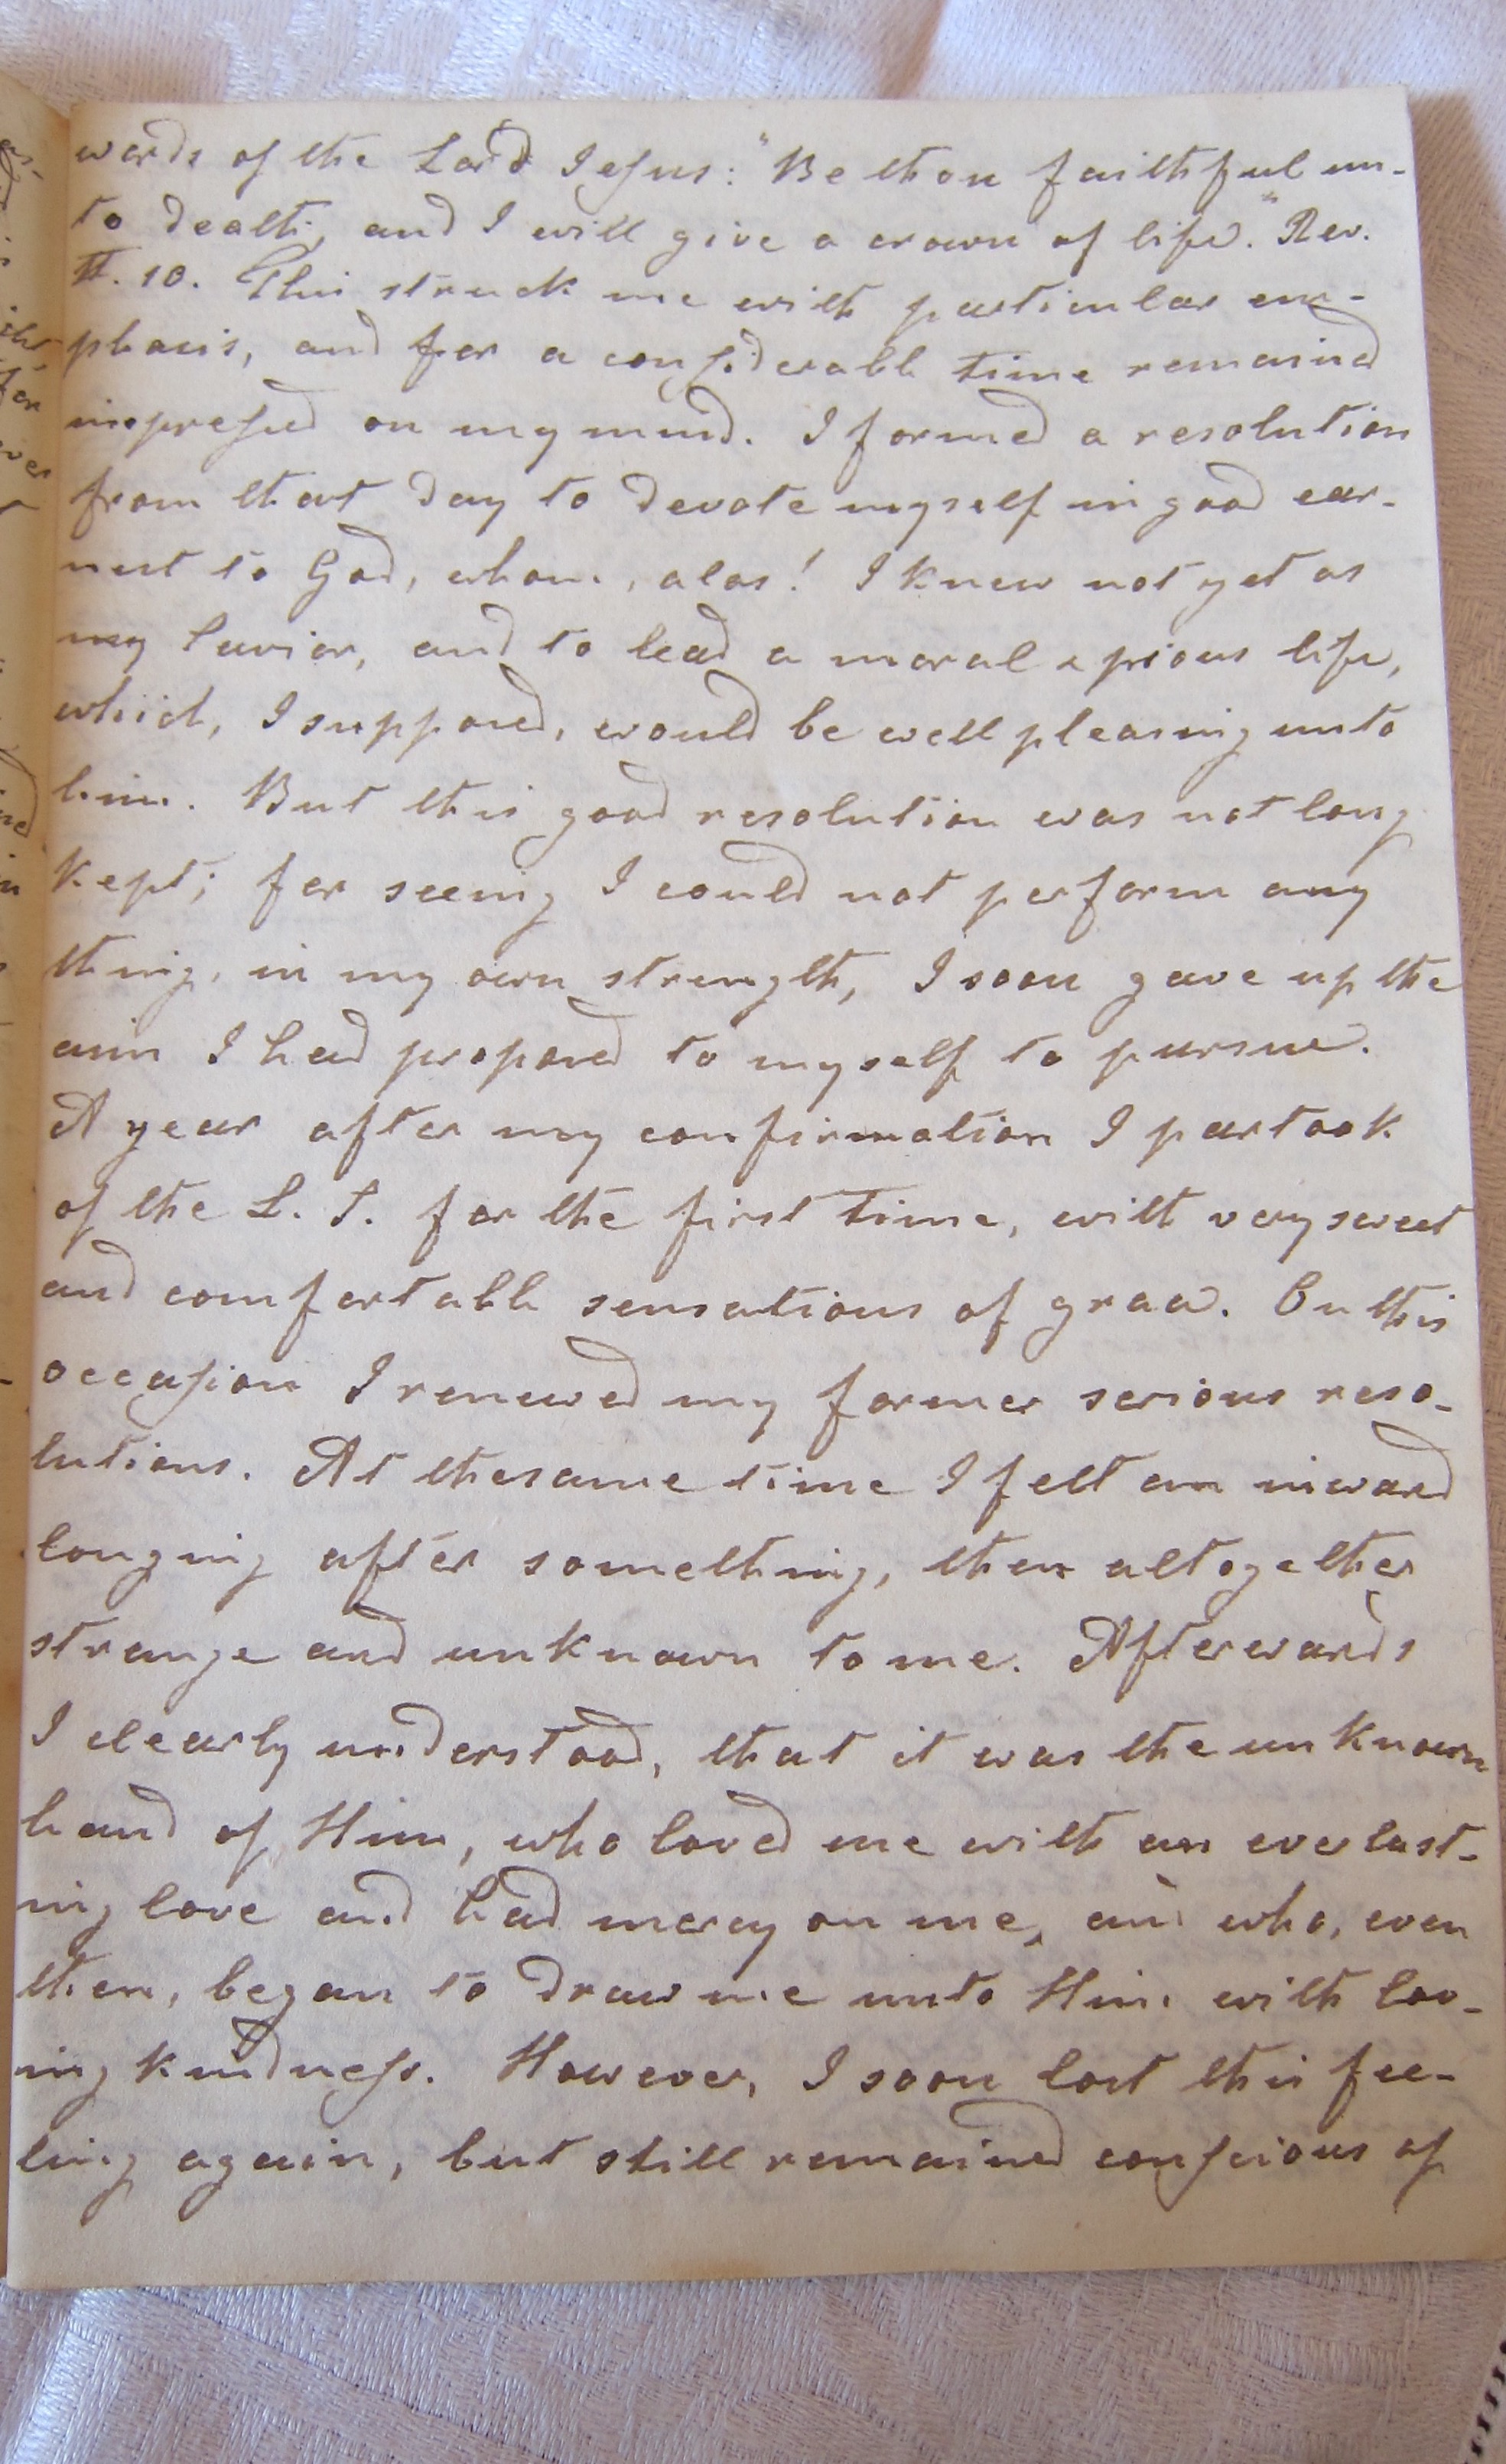 words of the Lord Jesus: "Be thou faithful un-
to death, and I will give a crown of life." Rev.
II. 10. This struck me with particular em-
phasis, and for a considerable time remained
impressed on my mind. I formed a resolution
from that day to devote myself in good ear-
nest to God, whom, alas! I knew not yet as
my Savior, and to lead a moral & pious life,
which, I supposed, would be well pleasing unto
him. But this good resolution was not long
kept; for seeing I could not perform any
thing, in my own strength, I soon gave up the
aim I had proposed to myself to pursue.
A year after my confirmation I partook
of the L. S. for the first time, with very sweet
and comfortable sensations of grace. On this
occasion I renewed my former serious reso-
lutions. At the same time I felt an inward
longing after something, then altogether
strange and unknown to me. Afterwards
I clearly understood, that it was the unknown
hand of Him, who loved me with an everlast-
ing love and had mercy on me, and who, even
then, began to draw me unto Him with lov-
ing kindness. However, I soon lost this fee-
ling again, but still remained conscious of